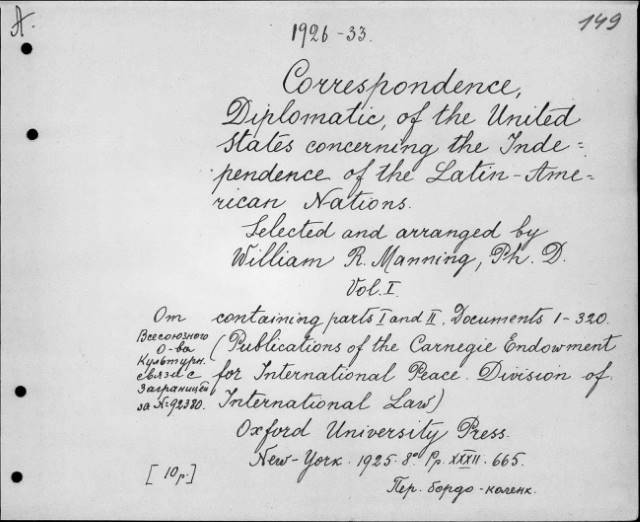 A.
149
1926-33.
Correspondence,
Diplomatic, of the United
States concerning the Inde=
pendence of the Latin-Ame=
rican Nations.
Selected and arranged by
William R. Manning, Ph. D.
Vol. I.
containing parts I and II. Documents 1-320.
(Publications of the Carnegie Endowment
for International Peace. Division of
International Law)
Oxford University Press.
New-York. 1925. 8° Pp. XXXII. 665.
От
Всесоюзного
О-ва
Культурн.
связи с
Заграницей
за № 92380.
[10 р.]
Пер. бордо-коленк.